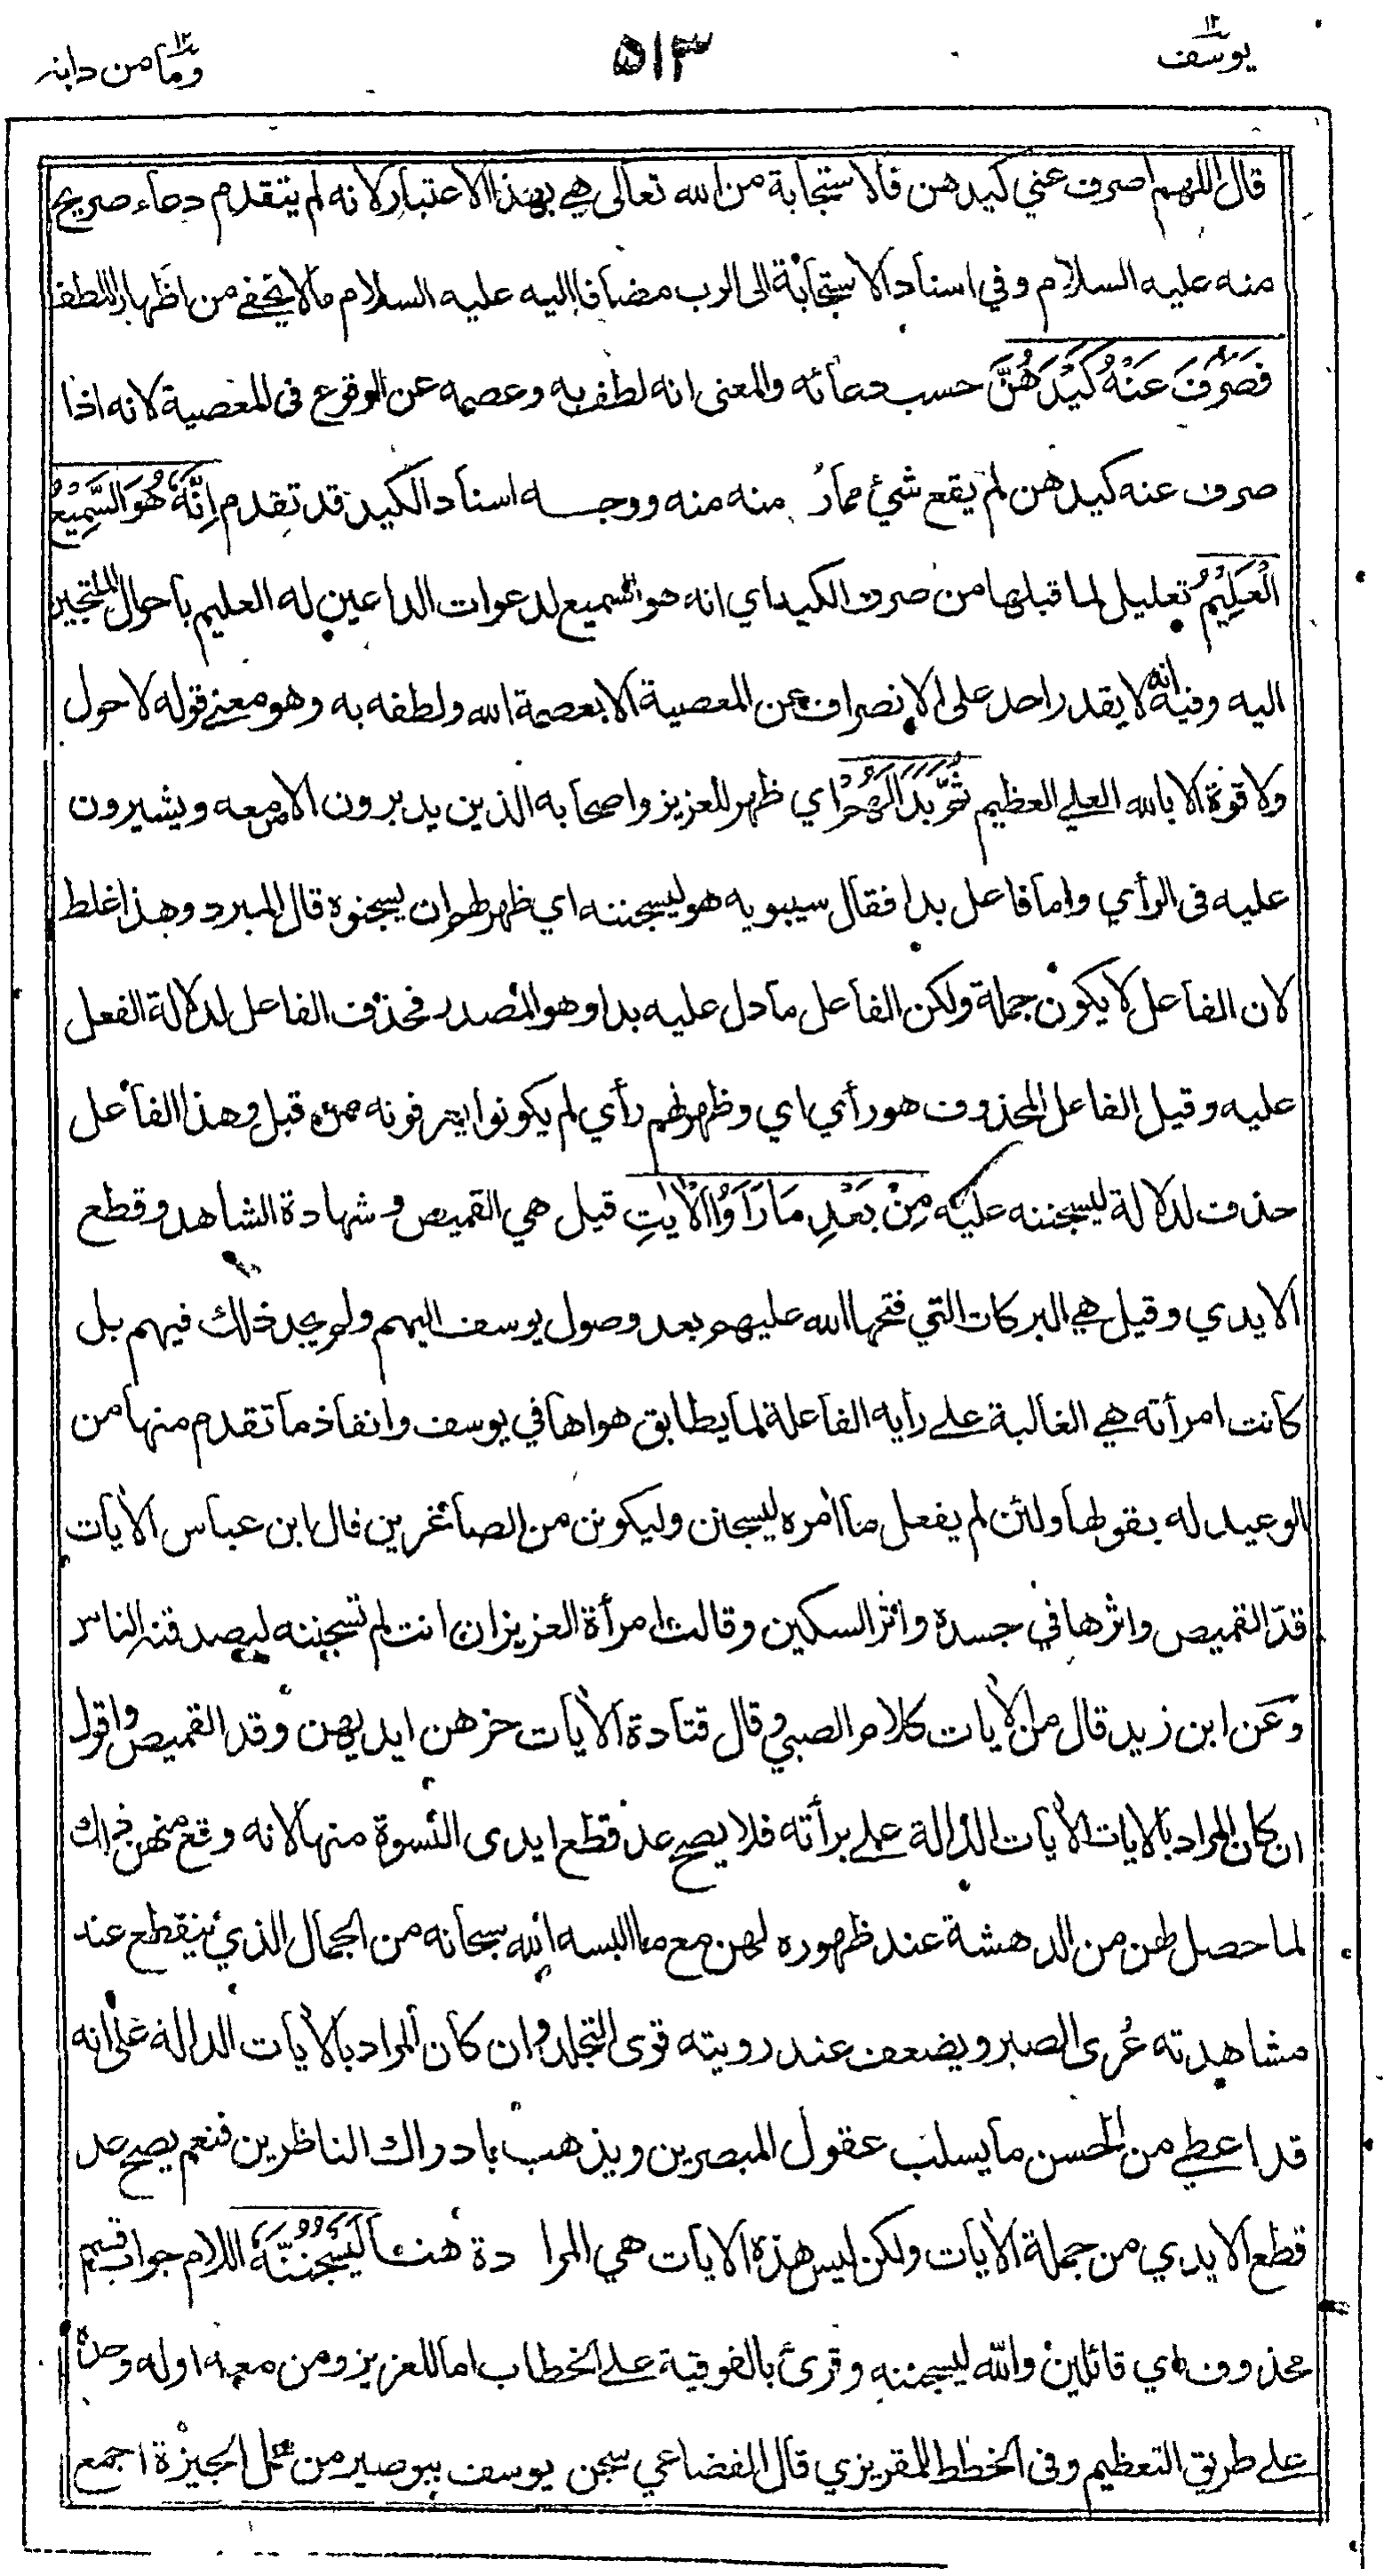 يوسف ١٢
٥١٣
وما من دابة ١٢
قال اللهم اصرف عني كيدهن فالاستجابة من الله تعالى هي بهذا الاعتبار لانه لم يتقدم دعاء صريح
منه عليه السلام وفي اسناد الاستجابة الى الرب مضافا اليه عليه السلام مالا يخفے من اظهار اللطف
فَصَرَفَ عَنْهُ كَيْدَهُنَّ حسب دعائه والمعنى انه لطف به وعصمه عن الوقوع فى المعصية لانه اذا
صرف عنه كيدهن لم يقع شئ مما رمنه منه ووجه اسناد الكيد قد تقدم اِنَّهٗ هُوَ السَّمِيْعُ
الْعَلِيْمُ تعليل لما قبلها من صرف الكيد اي انه هو السميع لدعوات الداعين له العليم باحوال الملتجين
اليه وفيه انه لا يقدر احد على الانصراف عن المعصية الا بعصمة الله ولطفه به وهو معنے قوله لا حول
ولا قوة الا بالله العلے العظيم ثُمَّ بَدَا لَهُمْ اي ظهر للعزيز واصحابه الذين يدبرون الامر معه ويشيرون
عليه فى الرأي واما فاعل بدا فقال سيبويه هو ليسجننه اي ظهر لهم ان يسجنوه قال المبرد وهذا غلط
لان الفاعل لا يكون جملة ولكن الفاعل ما دل عليه بدا وهو المصدر فحذف الفاعل لدلالة الفعل
عليه وقيل الفاعل المحذوف هو رأي اي وظهر لهم رأي لم يكونوا يعرفونه من قبل وهذا الفاعل
حذف لدلالة ليسجننه عليه مِنْ بَعْدِ مَا رَاَوُا الْاٰيٰتِ قيل هي القميص وشهادة الشاهد وقطع
الايدي وقيل هي البركات التي فتحها الله عليهم بعد وصول يوسف اليهم ولم يجد ذلك فيهم بل
كانت امرأته هي الغالبة علے رأيه الفاعلة لما يطابق هواها في يوسف وانفاذ ما تقدم منها من
الوعيد له بقولها ولئن لم يفعل ما اٰمره ليسجنن وليكونن من الصاغرين قال ابن عباس الاٰيات
قدّ القميص واثرها في جسده واثر السكين وقالت امرأة العزيز ان انت لم تسجننه ليصدقنه الناس
وعن ابن زيد قال من الاٰيات كلام الصبي وقال قتادة الاٰيات حزهن ايديهن وقد القميص واقول
ان كان المراد بالاٰيات الاٰيات الدالة علے برأته فلا يصح عد قطع ايدى النسوة منها لانه وقع منهن ذلك
لما حصل لهن من الدهشة عند ظهوره لهن مع ما البسه الله سبحانه من الجمال الذي ينقطع عند
مشاهدته عُرى الصبر ويضعف عند رويته قوى التجلد وان كان المراد بالاٰيات الدالة على انه
قد اعطي من الحسن ما يسلب عقول المبصرين ويذهب بادراك الناظرين فنعم يصح عد
قطع الايدي من جملة الاٰيات ولكن ليس هذه الاٰيات هي المرادة هنا لَيَسْجُنُنَّهٗ اللام جواب قسم
محذوف اي قائلين والله ليسجننه وقرئ بالفوقية علے الخطاب اما للعزيز ومن معه او له وحده
علے طريق التعظيم وفى الخطط للمقريزي قال القضاعي سجن يوسف ببوصير من عمل الجيزة اجمع